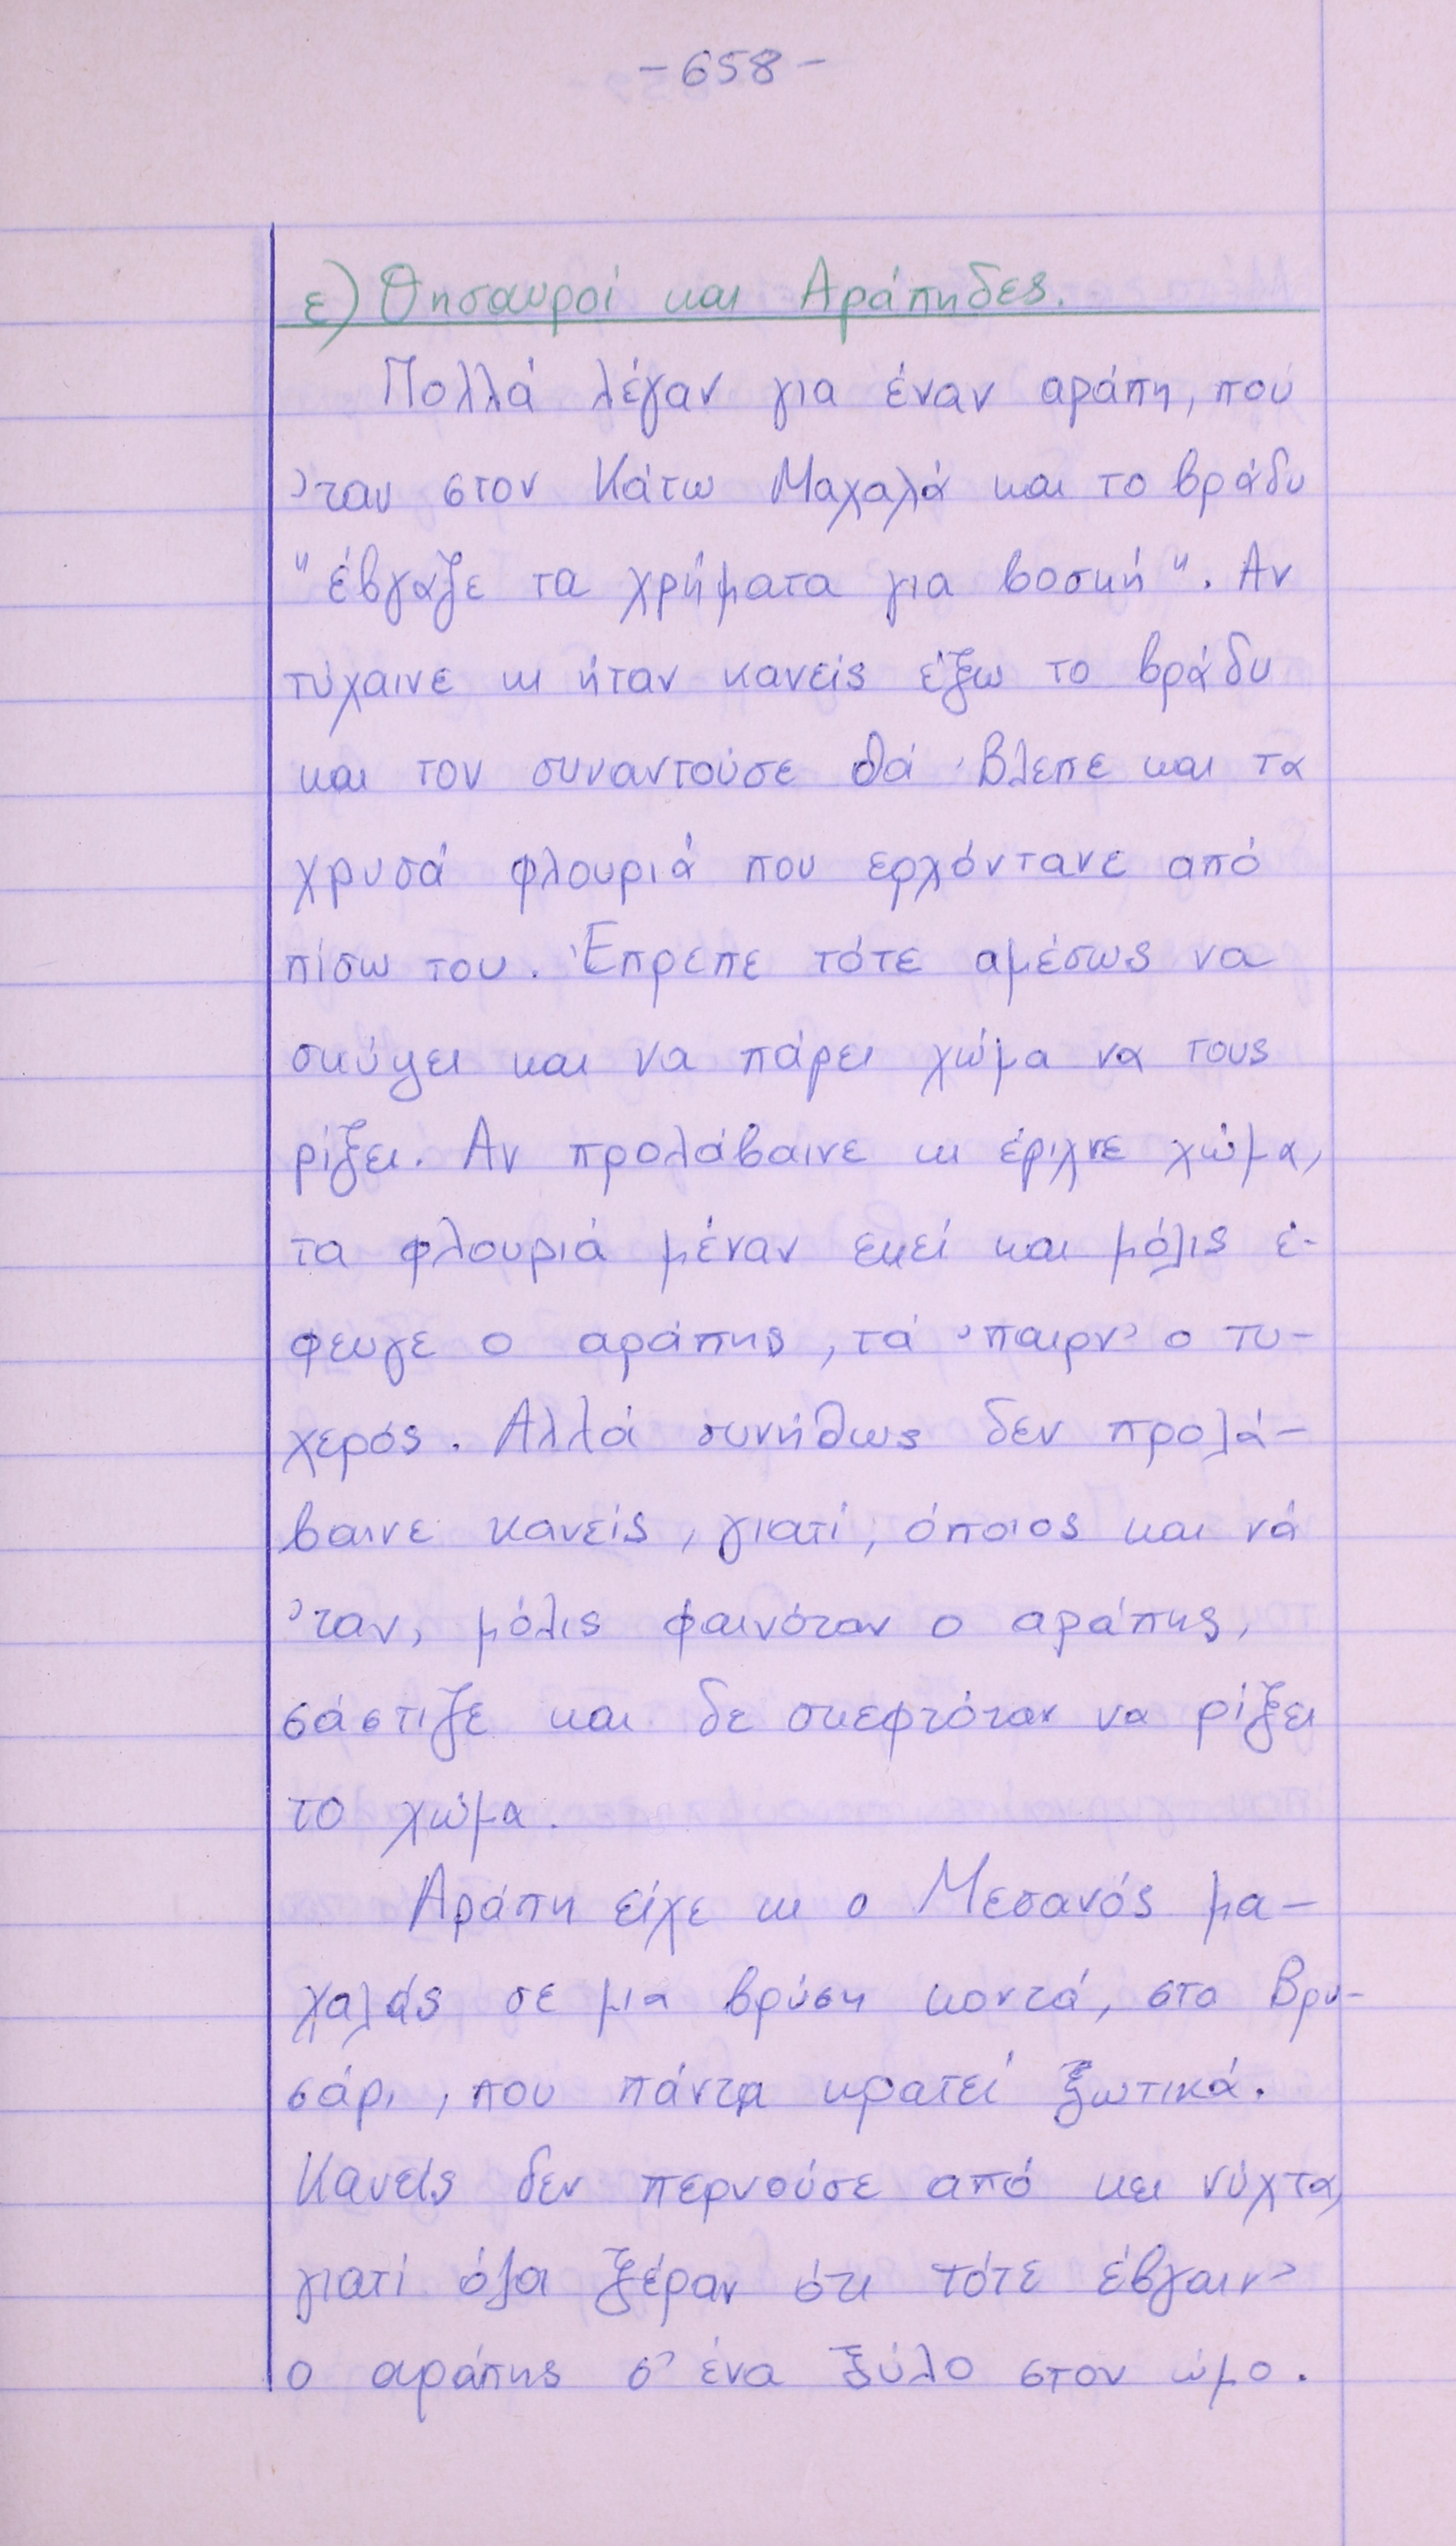 -658-
ε) Θησαυροί και Αράπηδες.
Πολλά λέγαν για έναν αράπη, πού
'ταν στον Κάτω Μαχαλά και το βράδυ
"έβγαζε τα χρήματα για βοσκή". Αν
τύχαινε κι ήταν κανείς έξω το βράδυ
και τον συναντούσε θά 'βλεπε και τα
χρυσά φλουριά που ερχόντανε από
πίσω του. Έπρεπε τότε αμέσως να
σκύψει και να πάρει χώμα να τους
ρίξει. Αν προλάβαινε κι έριχνε χώμα,
τα φλουριά μέναν εκεί και μόλις έ-
φευγε ο αράπης, τά 'παιρν' ο τυ-
χερός. Αλλά συνήθως δεν προλά-
βαινε κανείς, γιατί, όποιος και νά
'ταν, μόλις φαινόταν ο αράπης,
σάστιζε και δε σκεφτόταν να ρίξει
το χώμα.
Αράπη είχε κι ο Μεσανός μα-
χαλάς σε μια βρύση κοντά, στο Βρυ-
σάρι, που πάντα κρατεί ξωτικά.
Κανείς δεν περνούσε από κει νύχτα,
γιατί όλοι ξέραν ότι τότε έβγαιν'
ο αράπης σ' ένα ξύλο στον ώμο.